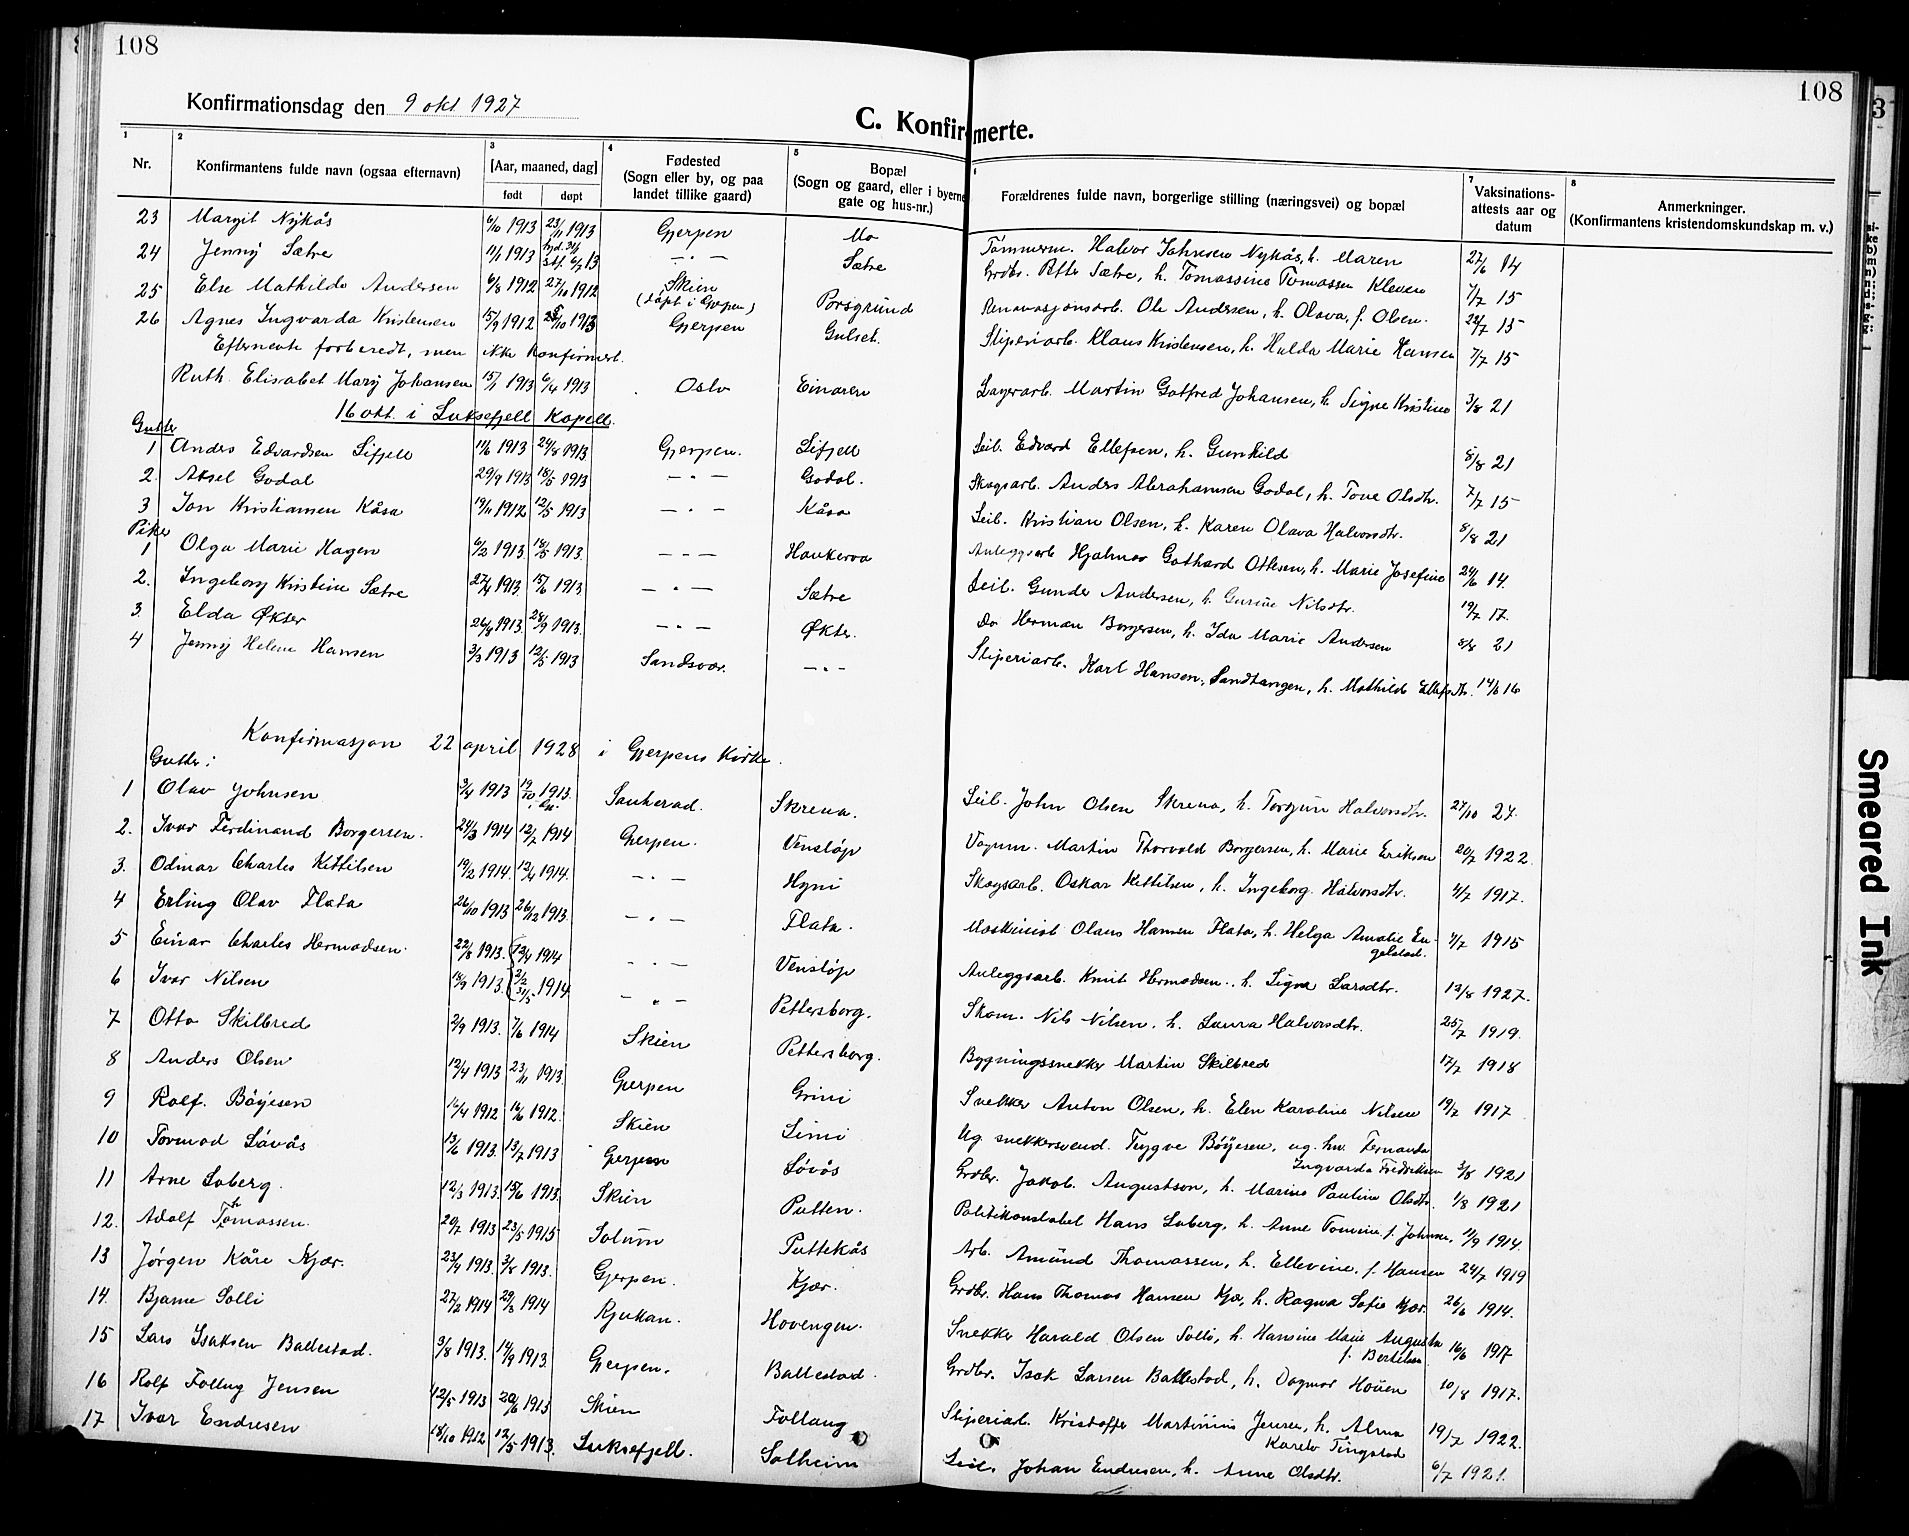 108
108
Konfirmationsdag den 9 okt 1927
C. Konfirmerte.
1 2 3 4 5 6 7 8
Nr. Konfirmantens fulde navn (ogsaa efternavn) [Aar, maaned, dag] født døpt Fødested (Sogn eller by, og paa landet tillike gaard) Bopæl (Sogn og gaard, eller i byerne gate og hus-nr.) Forældrenes fulde navn, borgerlige stilling (næringsvei) og bopæl Vaksinations-attests aar og datum Anmerkninger. (Konfirmantens kristendomskundskap m. v.)
23 Margit Nykås 6/10 1913 23/11 1913 Gjerpen Mo Tømmerm. Halvor Johnsen Nykås, h. Maren 27/6 14
24 Jenny Sætre 11/1 1913 -"- Sætre Grdbr. Petter Sætre, h. Tomassine Tomassen Kleven 7/7 15
25 Else Mathilde Andersen 6/8 1912 27/10 1912 Skien (døpt i Gjerpen) Porsgrund Renovasjonsarb. Ole Andersen, h. Olava, f. Olsen. 22/7 15
26 Agnes Ingvarda Kristensen 15/9 1912 1913 Gjerpen Gulset. Sliperiarb. Klaus Kristensen, h. Hulda Marie Hansen 7/7 15
Efternevnte forberedt, men ikke konfirmert.
Ruth Elisabet Mary Johansen 15/1 1913 6/4 1913 Oslo Einaren Lagerarb. Martin Gotfred Johansen, h. Signe Kristine 3/8 21
16 okt. i Luksefjell Kapell.
Gutter
1 Anders Edvardsen Lifjell 11/6 1913 24/8 1913 Gjerpen. Lifjell Leil. Edvard Ellefsen, h. Gunhild 8/8 21
2. Aksel Godal 29/9 1913 18/5 1913 -"- Godal. Skogsarb. Anders Abrahamsen Godal, h. Tone Olsdtr. 7/7 15
3 Jon Kristiansen Kåsa 19/11 1912 12/5 1913 -"- Kåsa Leil. Kristian Olsen, h. Karen Olava Halvorsdtr. 8/8 21
Piker
1 Olga Marie Hagen 6/2 1913 18/5 1913. -"- Haukeroa Anleggsarb Hjalmar Gothard Ottesen, h. Marie Josefine 24/6 14.
2. Ingeborg Kristine Sætre 27/4 1913. 15/6 1913. -"- Sætre Leil. Gunder Andersen, h. Gurine Nilsdtr. 19/7 17.
3. Elda Økter 26/8 1913. 28/9 1913. -"- Økter. Do Herman Borgersen, h. Ida Marie Andersen 8/8 21
4 Jenny Helene Hansen 3/3 1913 12/5 1913 Sandsvær. -"- Sliperiarb. Karl Hansen, Sandtangen, h. Mathilde Ellefsdtr. 14/6 16
Konfirmasjon 22 april 1928 i Gjerpens Kirke.
Gutter:
1 Olav Johnsen 3/4 1913 19/10 1913. Sauherad. Skrena. Leil. John Olsen Skrena, h. Torgjun Halvorsdtr. 27/10 27.
2. Ivar Ferdinand Borgersen. 24/3 1914 12/7 1914 Gjerpen. Venstøp Vognm. Martin Thorvald Borgersen, h. Marie Eriksen 20/7 1922.
3. Odmar Charles Kittilsen 19/2 1914. 12/4 1914. -"- Hyni Skogsarb. Oskar Kittilsen, h. Ingeborg Halvorsdtr. 4/7 1917.
4 Erling Olav Flata 26/10 1913 26/12 1913. -"- Flata. Maskinist Olaus Hansen Flata, h. Helga Amalie Engelstad. 4/7 1915
5 Einar Charles Hermodsen. 22/8 1913. 13/4 1914 -"- Venstøp Anleggsarb. Knut Hermodsen, h. Signe Larsdtr. 12/8 1927.
6 Ivar Nilsen 18/9 1913. 2/2 31/5 1914 -"- Pettersborg. Skom. Nils Nilsen, h. Laura Halvorsdtr. 25/7 1919.
7 Otto Skilbred 2/9 1913. 7/6 1914 Skien Pettersborg. Bygningssnekker Martin Skilbred 17/7 1918
8 Anders Olsen 12/4 1913 23/11 1913. Gjerpen Grini Snekker Anton Olsen, h. Elen Karoline Nilsen 19/7 1917
9 Rolf Böyesen 14/4 1912 16/6 1912. Skien Limi Ug. snekkersvend. Trygve Böyesen, ug. kv. Fernanda Ingvarda Fredriksen 3/8 1921
10 Tormod Løvås 13/6 1913. 13/7 1913 Gjerpen Løvås Grdbr. Jakob Augustson, h. Marine Pauline Olsdtr. 1/8 1921
11 Arne Loberg. 12/3 1913. 15/6 1913. Skien Putten. Politikonstabel Hans Loberg, h. Anne Tomine f. Johnsen, 11/9 1914.
12. Adolf Thomassen. 20/7 1913 23/5 1915 Solum Puttekås Arb. Amund Thomassen, h. Ellevine, f. Hansen 24/7 1919
13 Jørgen Kåre Kjær. 23/4 1913. 3/8 1913. Gjerpen. Kjær. Grdbr. Hans Thomas Hansen Kjær, h. Ragna Sofie Kjær. 26/6 1914.
14. Bjarne Solli 27/2 1914 29/3 1914 Rjukan. Hovengen. Snekker Harald Olsen Solli, h. Hansine Marie Augusta f. Bertelsen. 16/6 1917
15 Lars Isaksen Ballestad. 3/8 1913. 14/9 1913 Gjerpen. Ballestad. Grdbr. Isak Larsen Ballestad, h. Dagmar Houen 10/8 1917.
16 Rolf Follug Jensen 12/5 1913 20/6 1913 Skien Follaug Sliperiarb. Kristoffer Martinius Jensen, h. Alma Karete Tingstad 19/7 1922.
17 Ivar Endresen 18/10 1912 12/5 1913. Luksefjell. Solheim Leil. Johan Endresen, h. Anne Olsdtr. 6/7 1921.
Smeared Ink